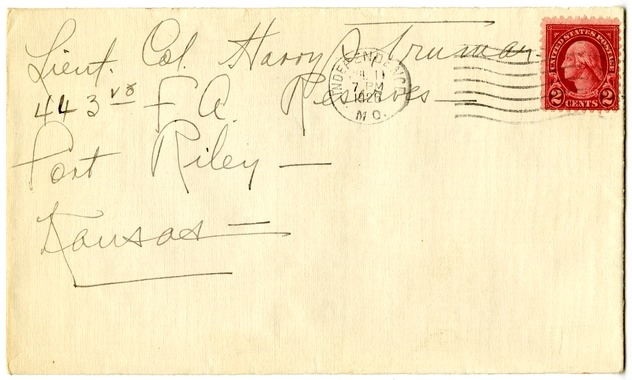 Lieut. Col. Harry S. Truman.
443rd F A. Reserves —
Fort Riley —
Kansas —
INDEPENDENCE
JUL 11
7 PM
MO.
UNITED STATES POSTAGE
2 CENTS 2